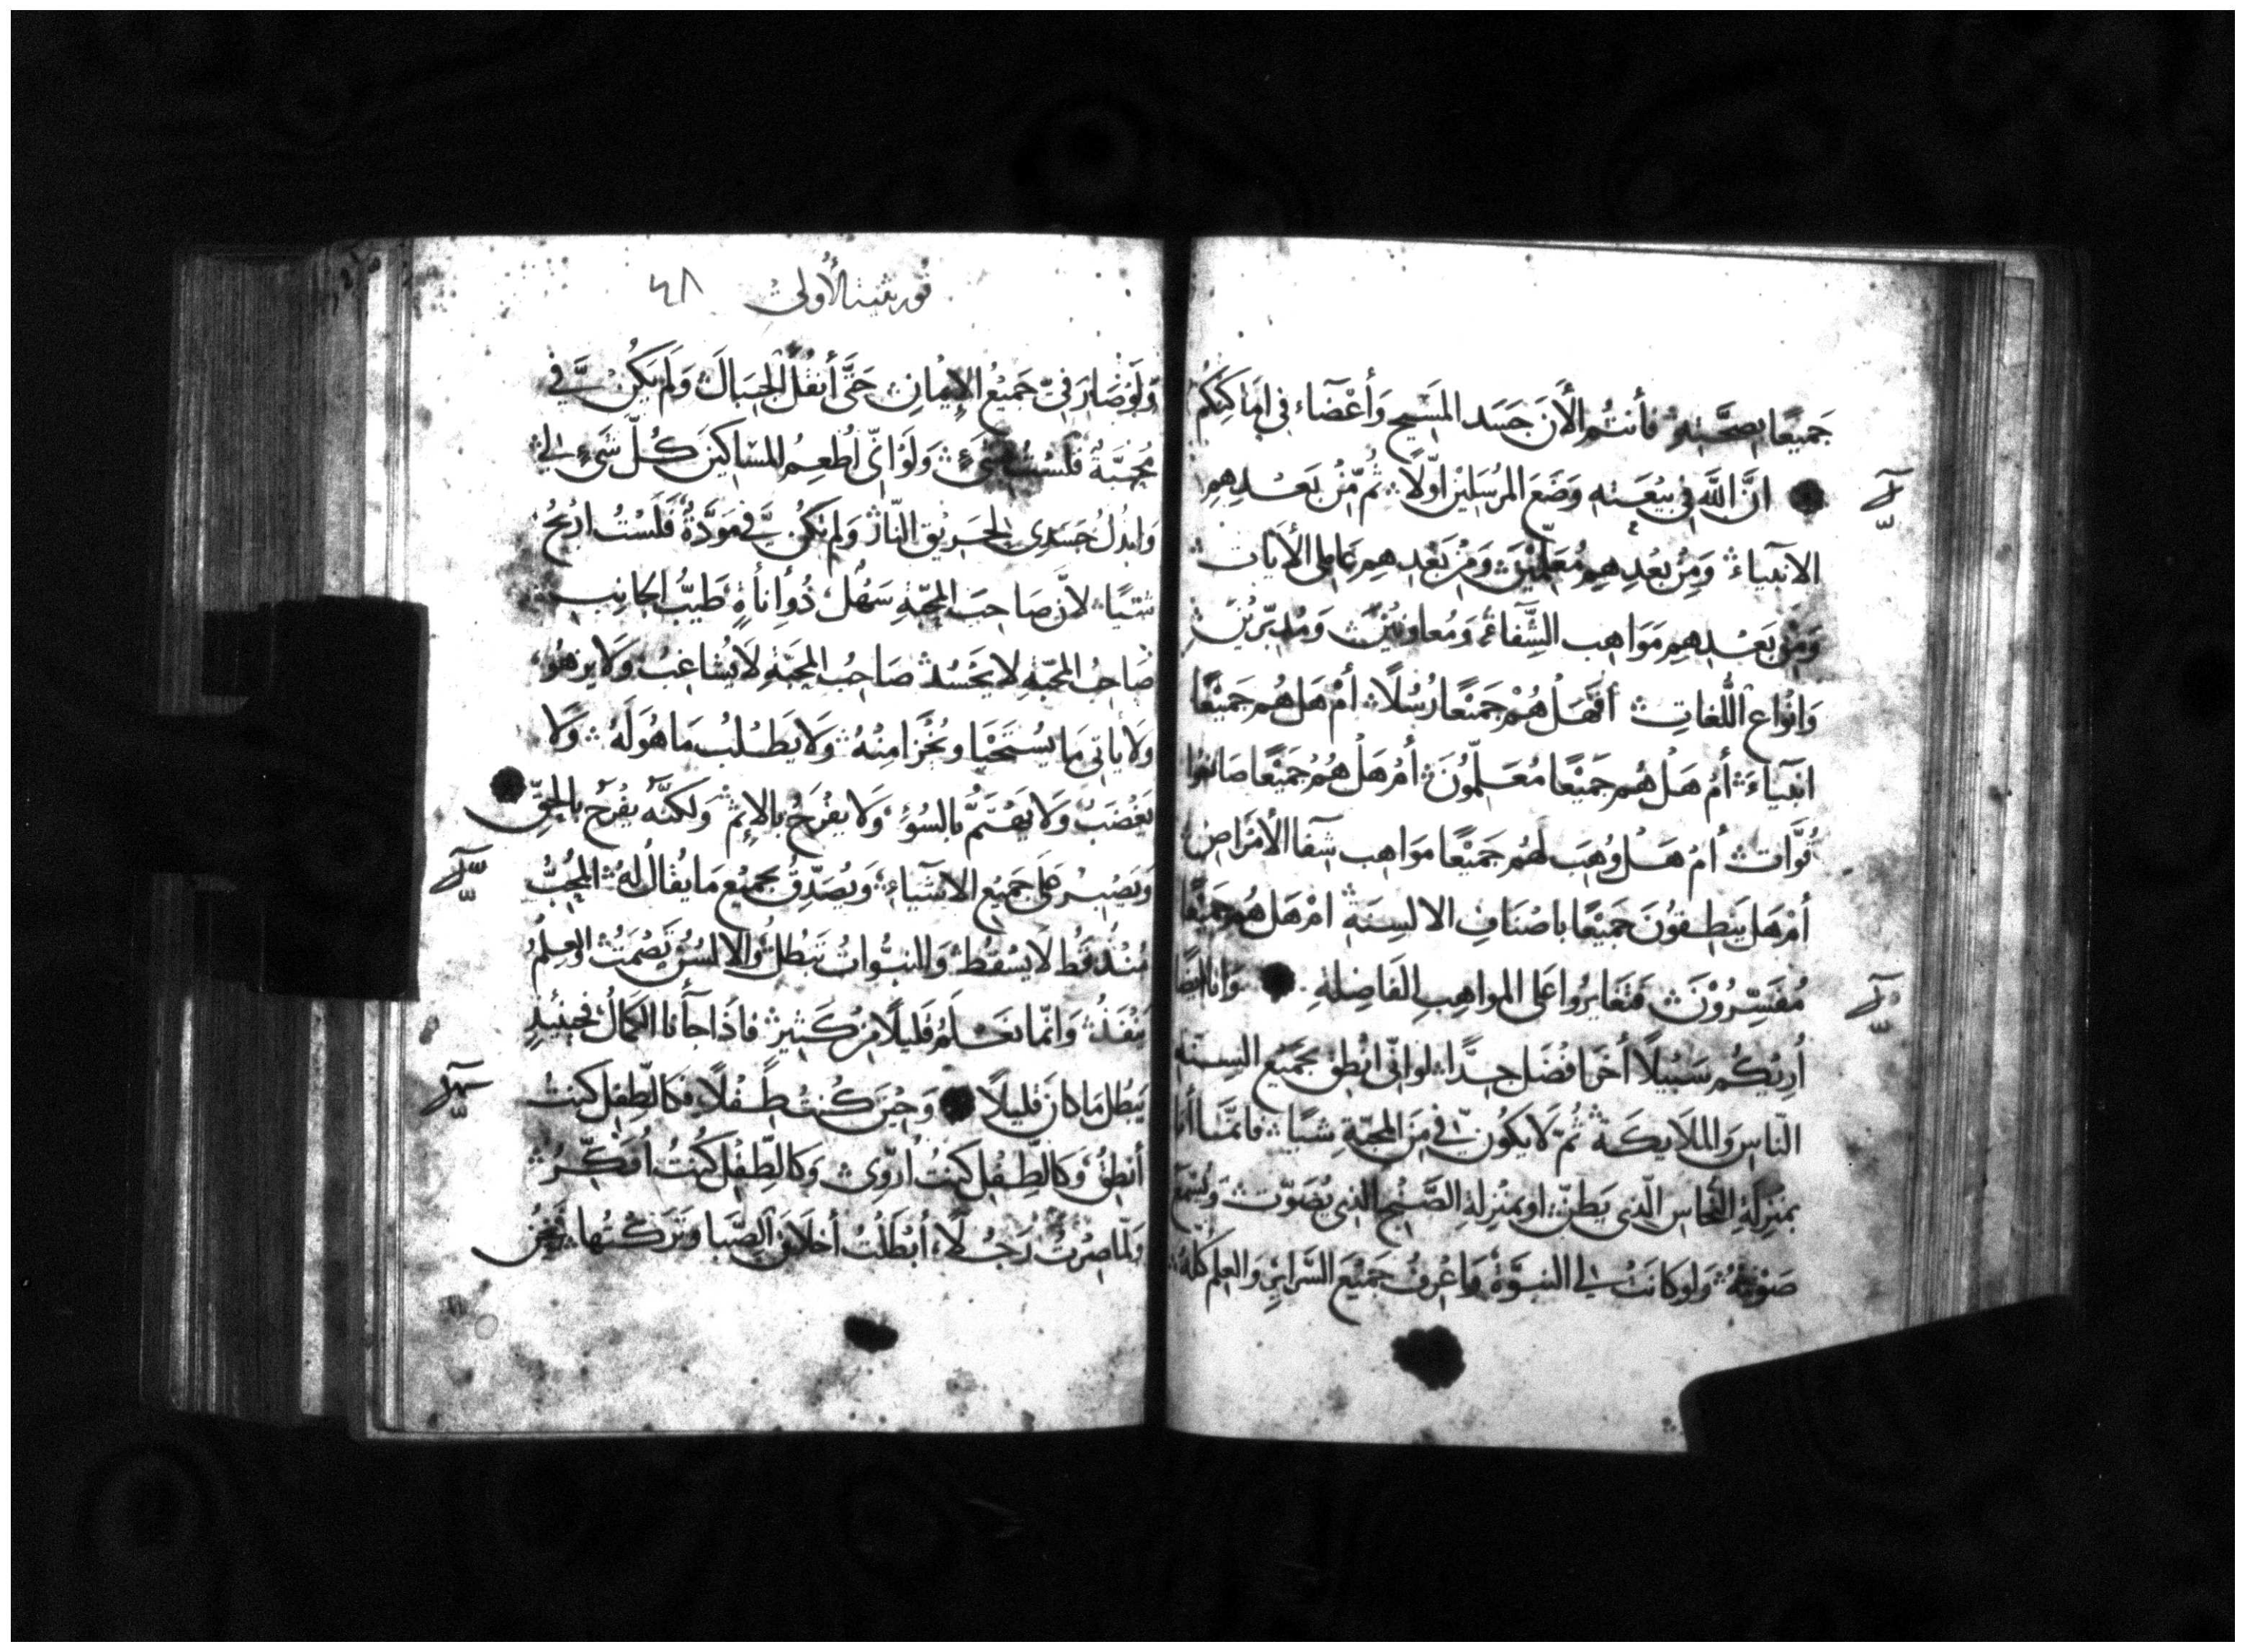 جَميعًا بصحَّته فأنتُم الأَنَ جَسَد المَسيح وَأعْضَاء في امَاكنكُم
انَّ اللَّه في بيْعَته وَضَعَ المرُسَليْن اوّلًا ثُم مّنْ بَعْدهِم
الانبيآء وَمِنْ بعُدِهِم مُعَلّميْنَ وَمِنْ بَعْدِهِم عَاملى الأيَات
وَمنْ بَعْدهِم مَوَاهِب الشّفآءِ وَمُعاونيْن وَمُدبّريْن
وَانوُاع اللّغاتِ أفَهَلْ هُمْ جَميْعًا رُسُلًا أمْ هَل هُم جَميْعًا
انبيآءَ أمْ هَلْ هُم جَميْعًا مُعَلّموُنَ أمْ هَلْ هُمْ جَميْعًا صَانعُوا
قُوَّات أمْ هَلْ وُهِبَ لهُم جَميْعًا مَوَاهِب شَفآ الأمْرَاضِ
أمْ هَل يَنطِقوُنَ جَميْعًا باصْنَافِ الالسِنَة امْ هَل هُم جَميْعًا
مُفَسّروُنَ فتَغايَروُا عَلى المواهِبِ الفَاضِلةِ وَانا ايضًا
أُريْكُم سَبيْلًا أخَر افضَل جدًّا لو انّى انْطِق بجَميْع السِنَة
النّاس وَالملَايكَة ثُمّ لَا يَكُون فيّ مِنَ المحَبّةِ شيًا فانّمَا أنا
بمنْزِلَةِ النّحَاس الّذى يَطنّ او بمنْزِلةِ الصَّنْج الذى يُصَوّت وَيُسْمَع
صَوْتُهُ وَلو كانَتْ لى النبوَّة وَاعْرِفُ جَميْعَ السَّرايرِ وَالعِلْم كلّهُ
قورنثيه الأولى ٤٨
وَلَوْ صَارَ فيّ جَميْعُ الإيْمانِ حَتَّى أنقُلَ الجِبَالَ وَلَم يَكُنْ فيَّ
مُحبَّةٌ فلَسْتُ بشَيءٍ وَلَوْ انّى اُطعِمُ للمسَاكينَ كُلّ شَيءٍ لى
وَابْذلُ جَسَدى لحَريْق النّار وَلم تكُن فيَّ مَوَدَّةٌ فَلَسْتُ ارْبحُ
شيًا لانّ صَاحِبَ المحَبّةِ سَهْلٌ ذُو أنَأةٍ طَيّبُ الجانِبِ
صَاحِبُ المحَبّةِ لا يَحْسُدُ صَاحِبُ المحَبّةِ لَا يُشاغِبُ وَلَا يزهُو
وَلا يَاتى مَا يُسْتَحْيَا وَيُخْزَا مِنْهُ وَلَا يَطلُب مَا هُوَ لَهُ وَلا
يَغْضَبُ وَلا يَهْتَمُّ بالسُوءِ وَلا يفْرَحُ بالإثْمِ وَلكنَّهُ يفْرَحُ بالحَقِّ
وَيَصْبِرْ عَلَى جَميْعِ الاشيآءِ وَيُصَدِّقُ بجميْع مَا يُقالُ لهُ المُحِبُّ
مُنْذُ قَطُ لَا يَسْقُطُ وَالنبُوَّاتُ تَبْطلُ وَالالسُنُ يَصْمَتُ وَالعِلْمُ
يَنْفَذُ وَانّما نَعْلَمُ قَليلًا مِنْ كَثيرٍ فاذَا جآءَنا الكمَالُ فحينَئِذٍ
يَبْطُل مَا كانَ قَليلًا وَحِيْنَ كُنتُ طِفْلًا فكالطّفِل كنتُ
أنطِقُ وَكالطِفْلِ كنتُ أروّى وَكالطِفْلِ كُنتُ أُفكّرُ
وَلمّا صِرْتُ رَجُلًا أبْطَلْتُ أخلَاقَ الصِّبَا وَتَرَكْتُها فنَحنُ